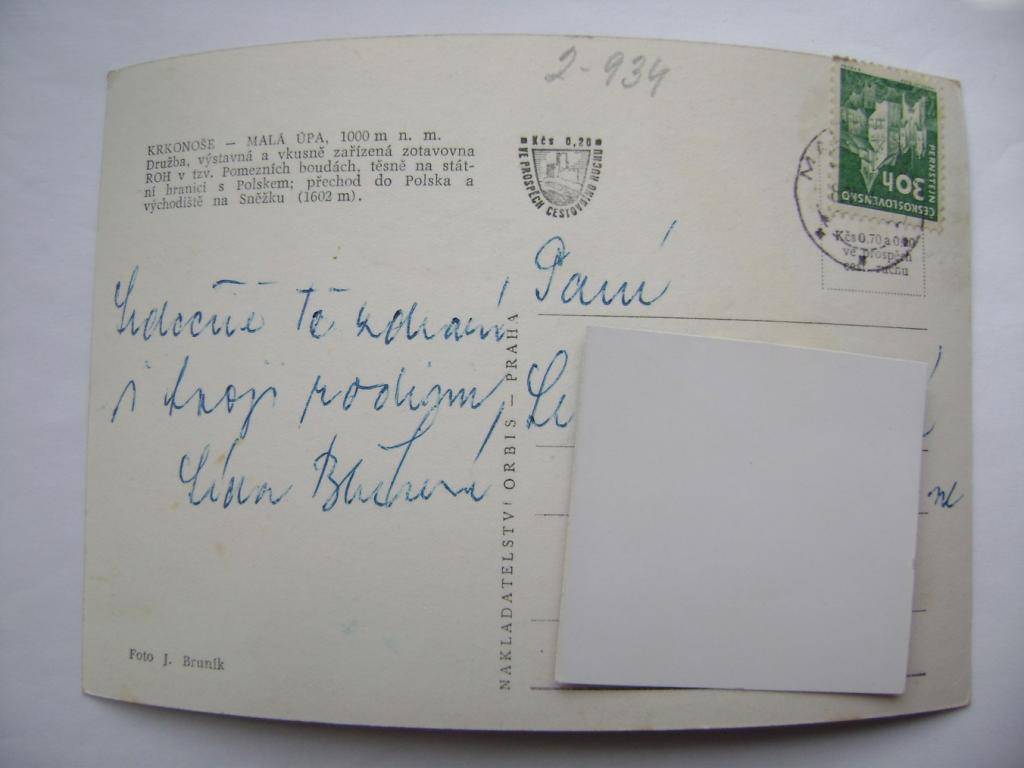 2-934
KRKONOŠE — MALÁ ÚPA, 1000 m n. m.
Družba, výstavná a vkusně zařízená zotavovna
ROH v tzv. Pomezních boudách, těsně na stát-
ní hranici s Polskem; přechod do Polska a
východiště na Sněžku (1602 m).
Kčs 0,20
VE PROSPĚCH CESTOVNÍHO RUCHU
PERNŠTEJN
30h
ČESKOSLOVENSKO
Kčs 0,70 a 0,20
ve prospěch
cest. ruchu
Paní
Srdečně tě zdraví
i tvoji rodinu,
NAKLADATELSTVÍ ORBIS — PRAHA
Foto J. Bruník